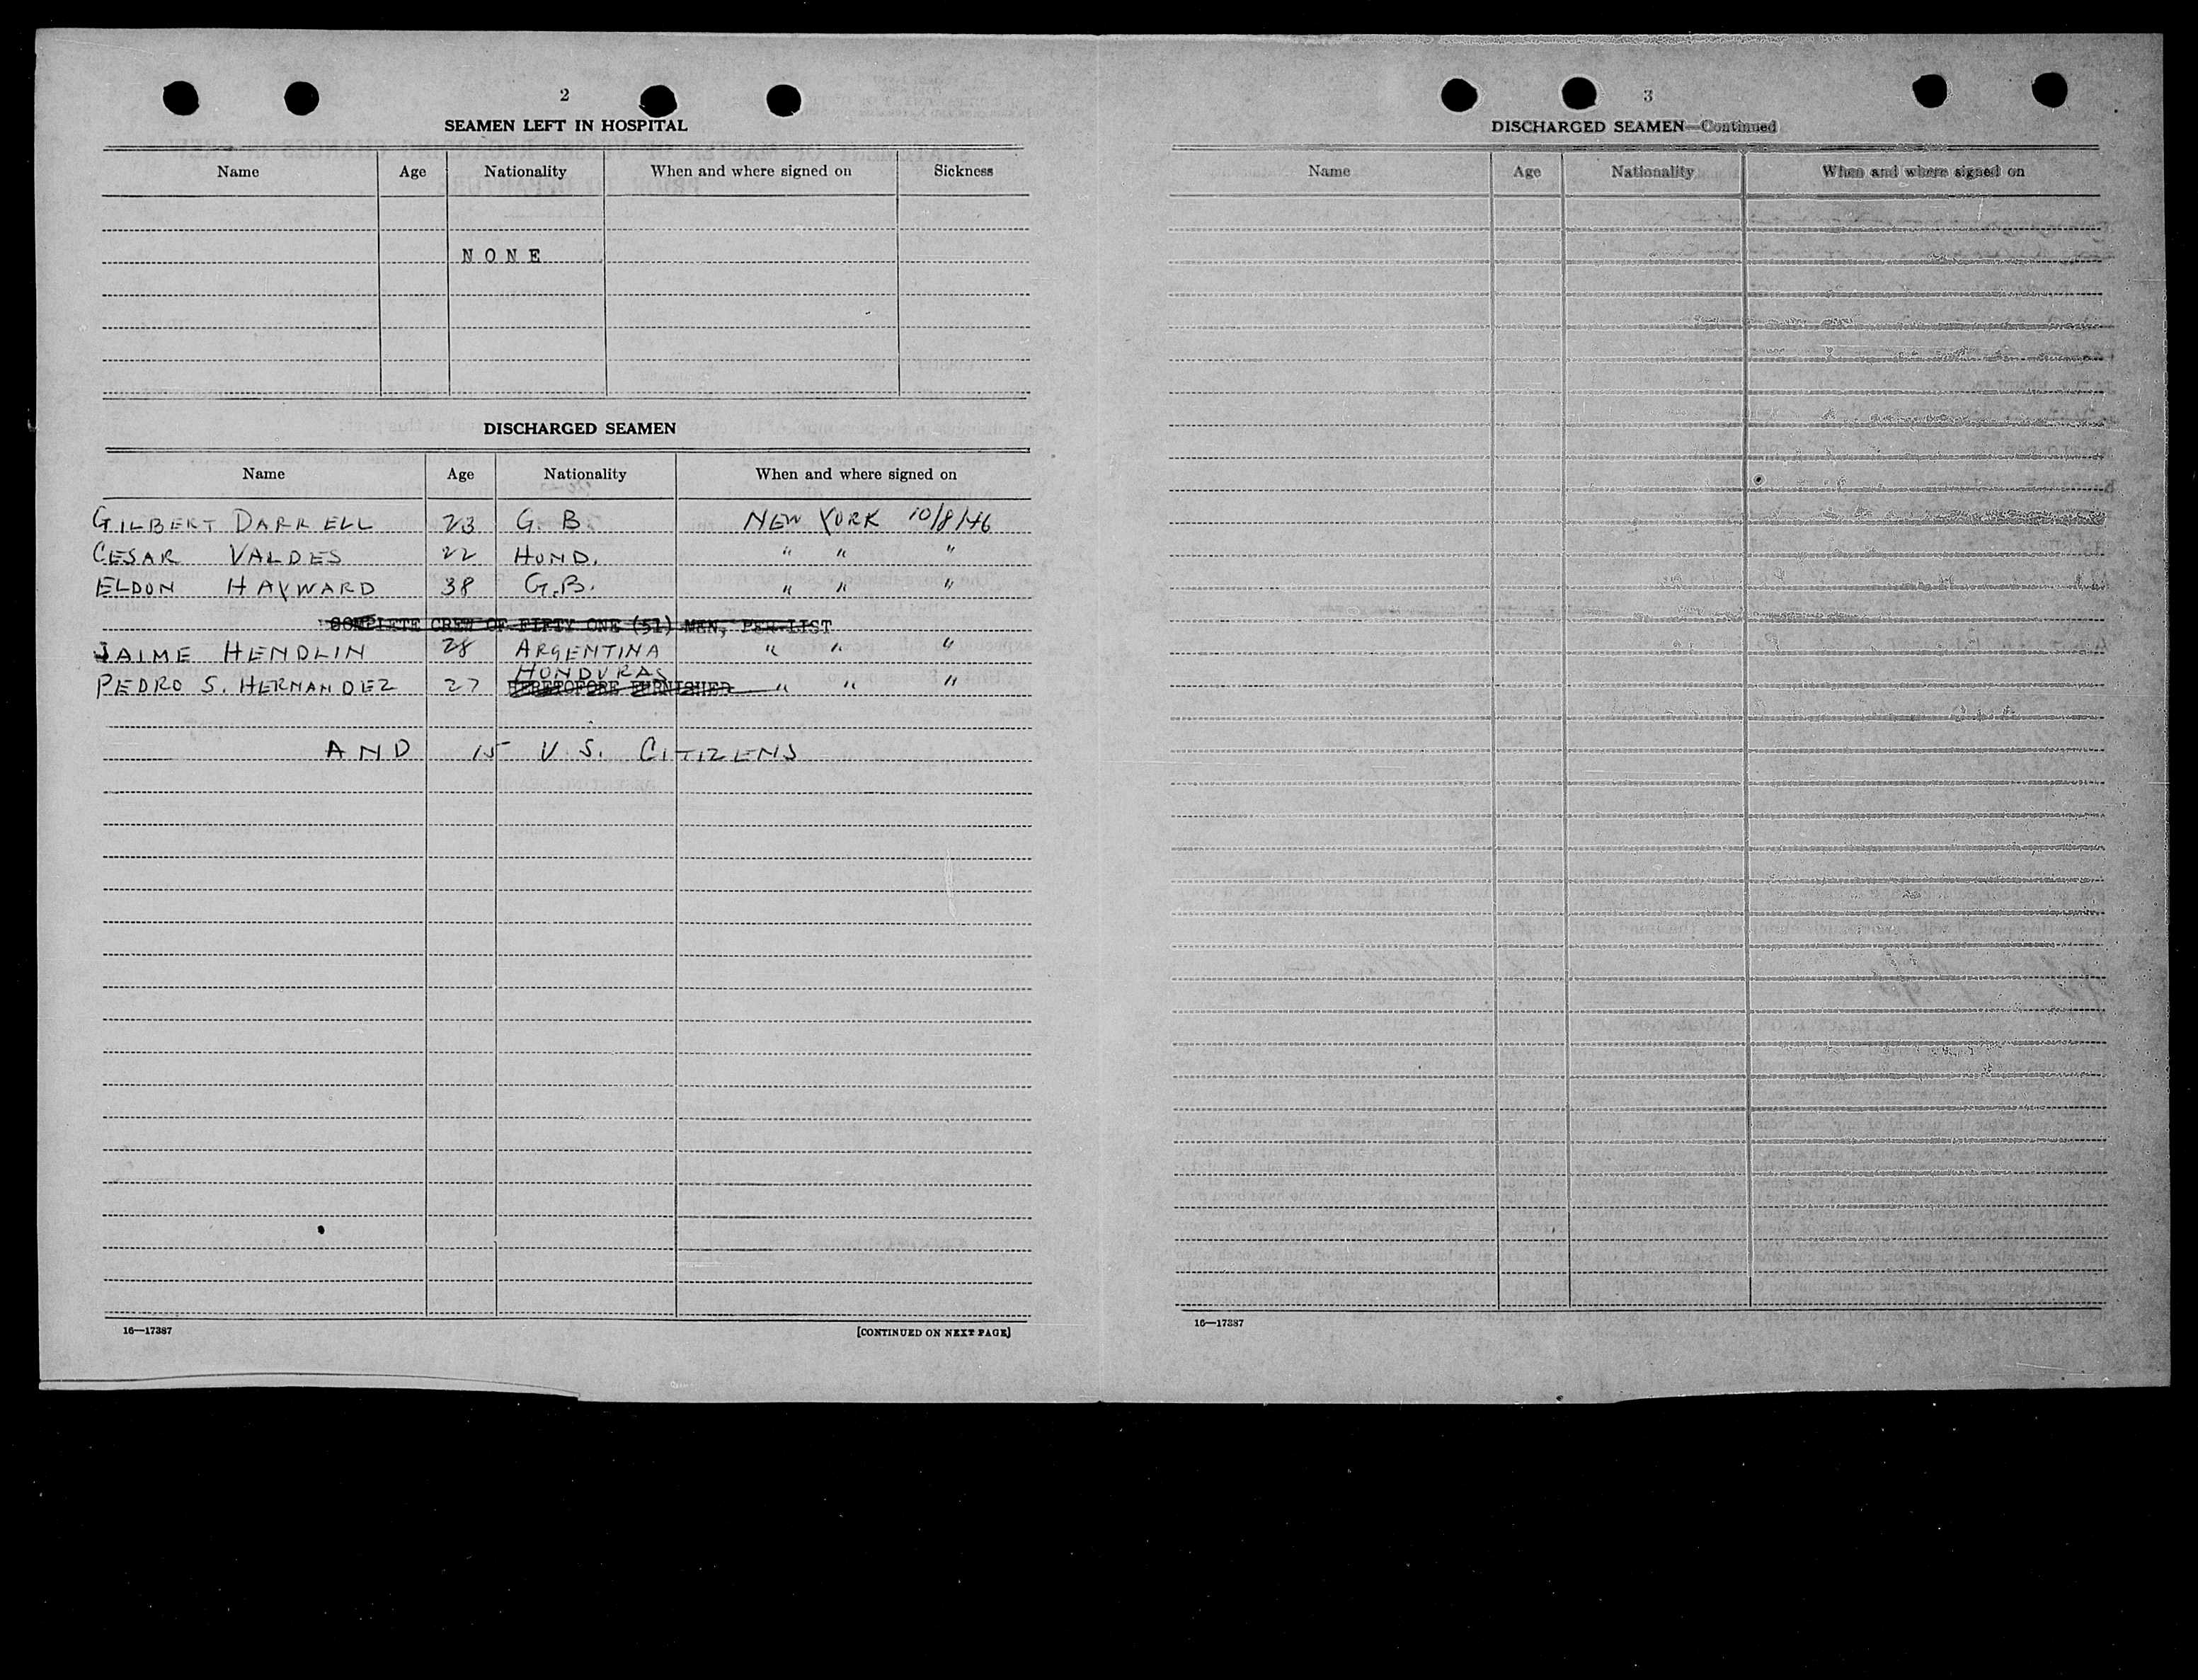 2
SEAMEN LEFT IN HOSPITAL
Name Age Nationality When and where signed on Sickness
NONE
DISCHARGED SEAMEN
Name Age Nationality When and where signed on
GILBERT DARRELL 23 G. B. NEW YORK 10/8/46
CESAR VALDES 22 HOND. " " "
ELDON HAYWARD 38 G.B. " " "
COMPLETE CREW OF FIFTY ONE (51) MEN, PER LIST
JAIME HENDLIN 28 ARGENTINA " " "
HONDURAS
PEDRO S. HERNANDEZ 27 HERETOFORE FURNISHED " " "
AND 15 U.S. CITIZENS
16—17387 [CONTINUED ON NEXT PAGE]
3
DISCHARGED SEAMEN—Continued
Name Age Nationality When and where signed on
16—17387